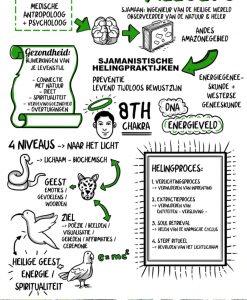 MEDISCHE
ANTROPOLOOG
+ PSYCHOLOOG
SJAMAAN: INGENIEUR VAN DE HEILIGE WERELD
OBSERVEERDER VAN DE NATUUR & HELER
ANDES
AMAZONEGEBIED
Gezondheid:
VAN
JE LEVENSTIJL
- CONNECTIE
MET NATUUR
- DIEET
- SPIRITUALITEIT
- OVERTUIGINGEN
SJAMANISTISCHE
HELINGPRAKTIJKEN
PREVENTIE
LEVEND TIJDLOOS BEWUSTZIJN
ENERGIEGENEES-
KUNDE +
WESTERSE
GENEESKUNDE
8TH
CHAKRA
DNA
ENERGIEVELD
4 NIVEAUS → NAAR HET LICHT
→ LICHAAM - BIOCHEMISCH
GEEST
EMOTIES /
GEVOELENS /
WOORDEN
ZIEL
→ POËZIE / BEELDEN /
VISUALISATIE /
GEBEDEN / AFFIRMATIES /
CEREMONIE
HEILIGE GEEST
ENERGIE /
SPIRITUALITEIT
E=mc²
HELINGPROCES:
1. VERLICHTINGSPROCES
→ VERANDEREN VAN INPRENTING
2. EXTRACTIEPROCES
→ VERANDEREN VAN
ENTITEITEN - VERSLAVING -
3. SOUL RETRIEVAL
→ HELEN VAN DE KARMISCHE CYCLUS
4. STERF RITUEEL
→ BEVRIJDEN VAN HET LICHTLICHAAM